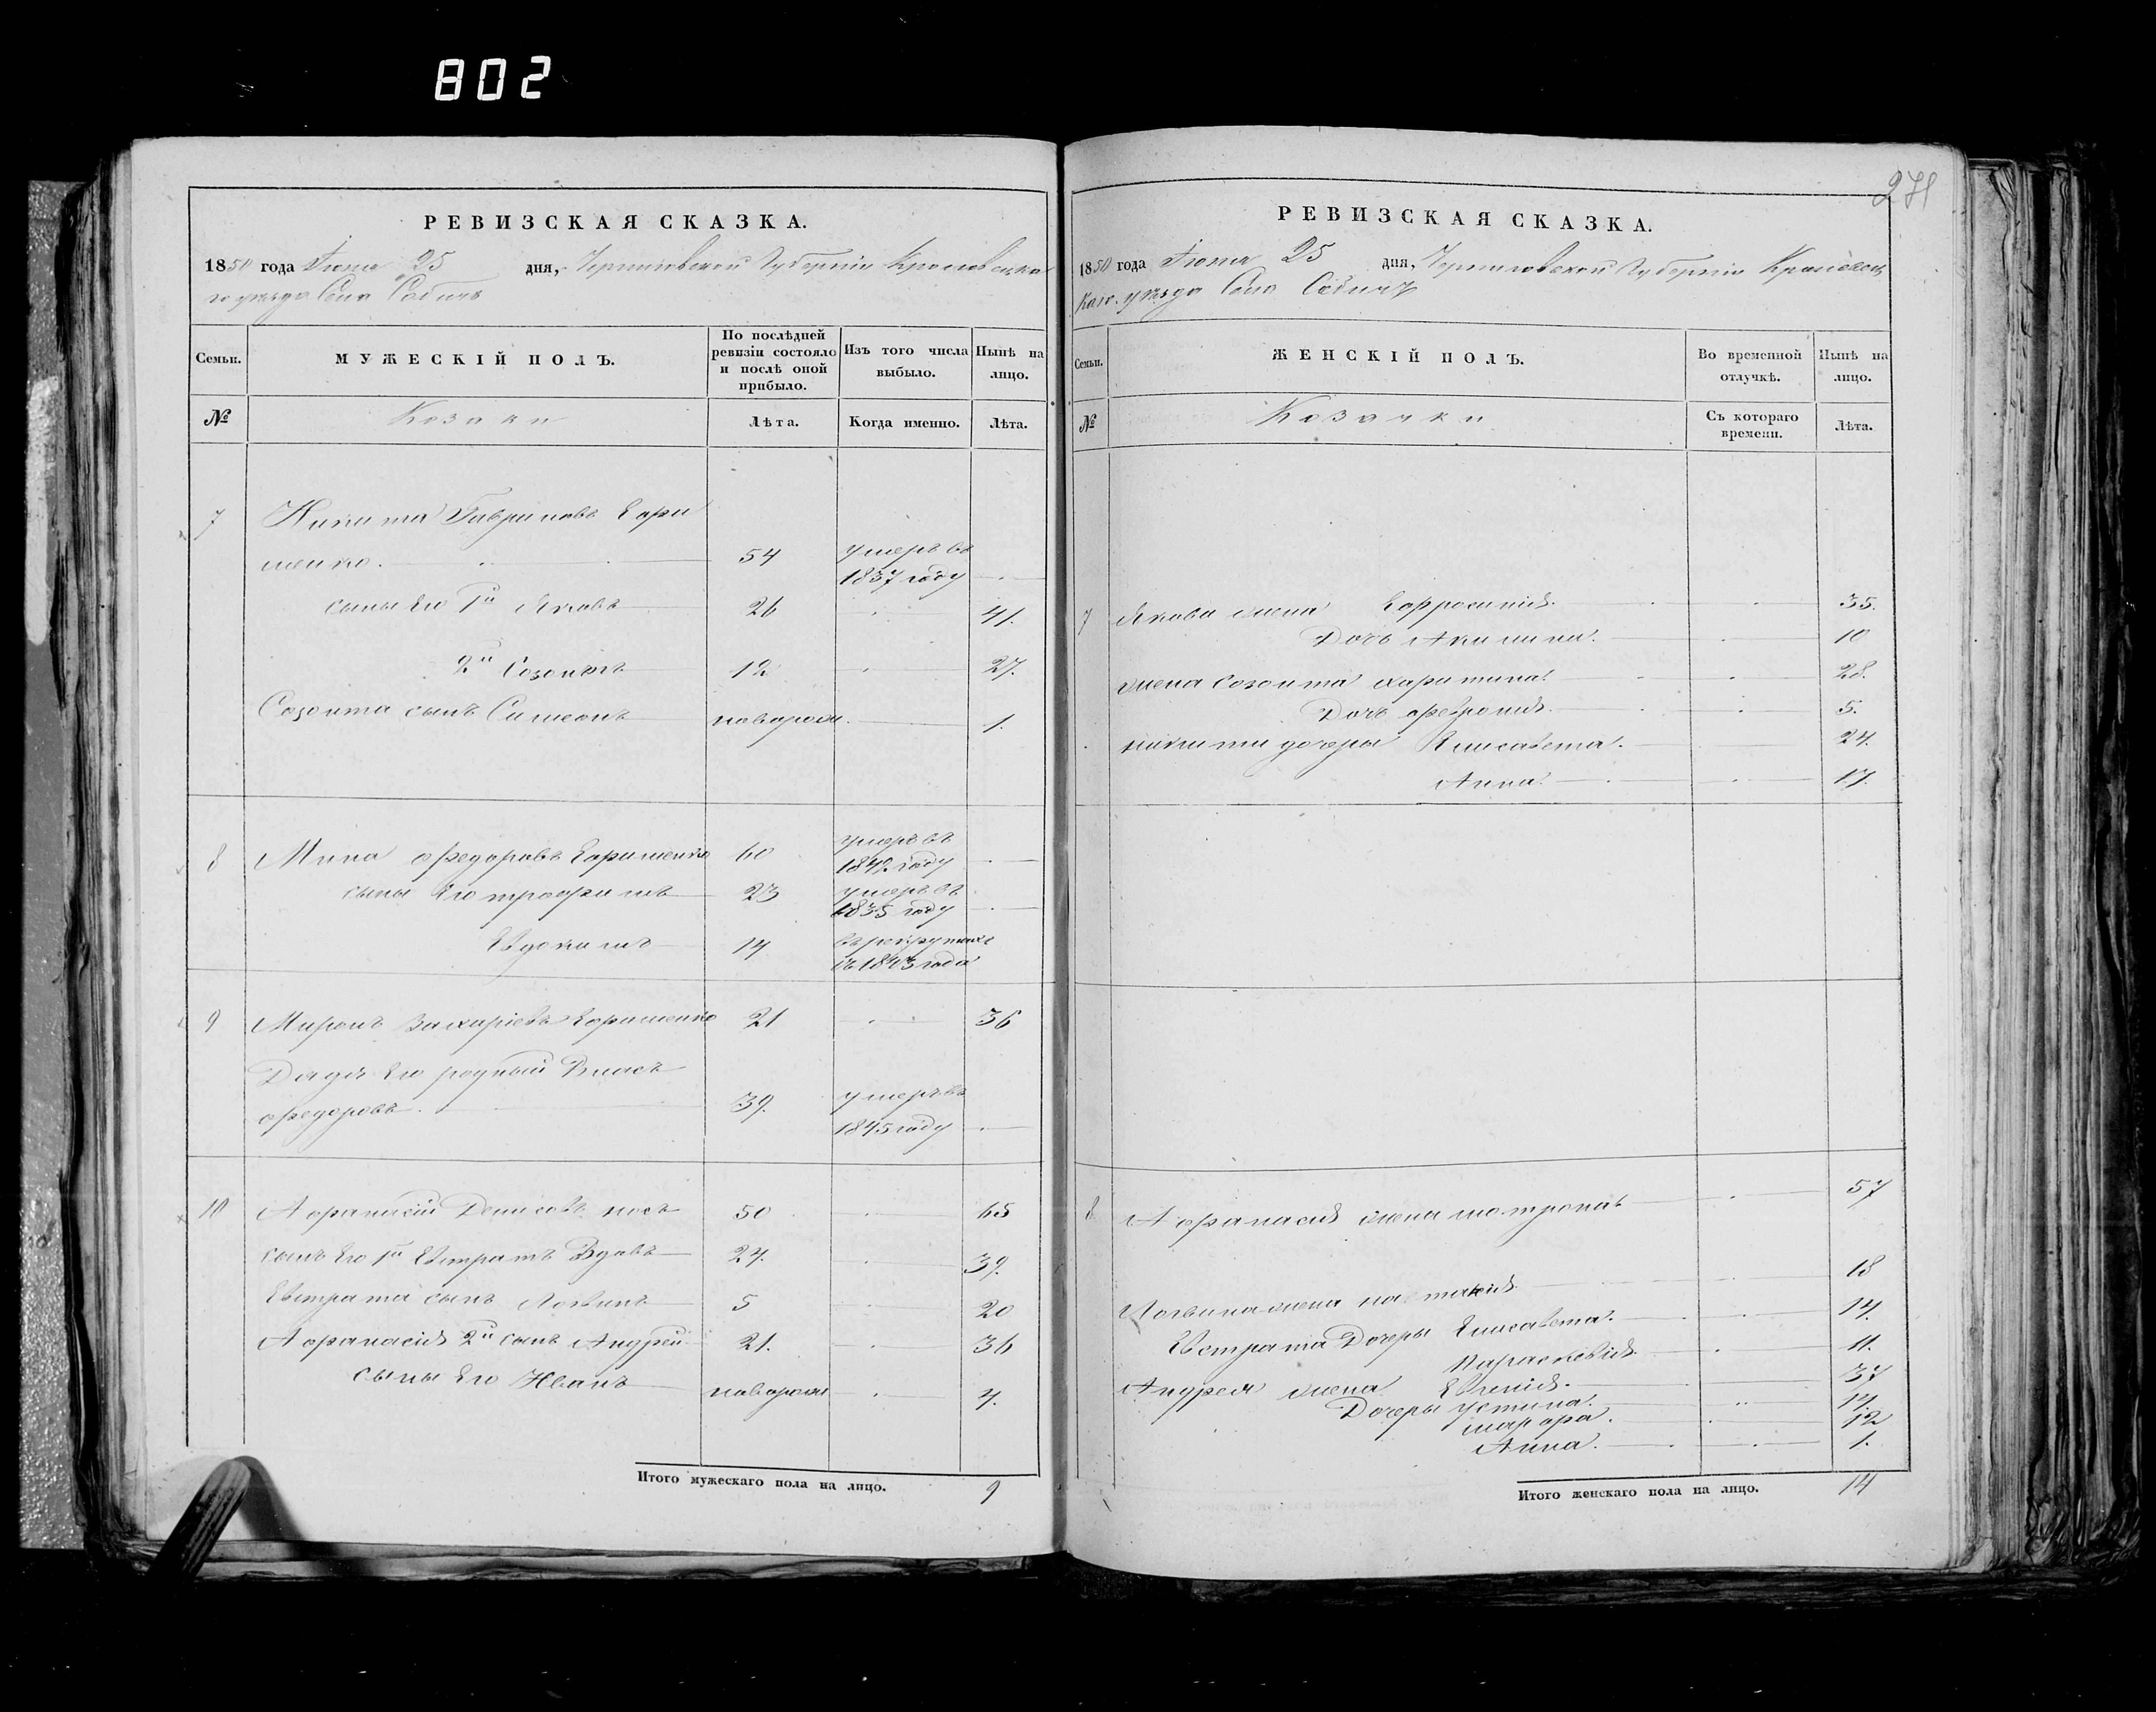 802
271
РЕВИЗСКАЯ СКАЗКА.
1850 года Июня 25 дня, Черниговской Губернiи Кролевецка
го уезда Села Собичъ
Семьи.
МУЖЕСКІЙ ПОЛЪ.
По послѣдней ревизіи состояло и послѣ оной прибыло.
Изъ того числа выбыло.
Нынѣ на лицо.
№
Козаки
Лѣта.
Когда именно.
Лѣта.
7 Никита Гавриловъ Ефи
менко. 54 умеръ въ
1837 году
сыны его 1й Яковъ 26 41.
2й Созонтъ 12 27.
Созонта сынъ Симеонъ новорож. 1.
8 Мина Федоровъ Ефименко 60 умеръ въ
1842 году
сыны его трофимъ 23 умеръ въ
1835 году
Евдокимъ 14 въ рекрутахъ
съ 1843 года
9 Миронъ Захаріевъ Ефименко 21 36
Дядя его родный Власъ
Федоровъ. 39. умеръ въ
1845 году
10 Афанасій Денисовъ носъ 50 65
сынъ его 1й Евстратъ Вдовъ 24. 39.
Евстрата сынъ Логвинъ 5 20
Афанасія 2й сынъ Андрей 21. 36
сыны его Иванъ новорож 4.
Итого мужескаго пола на лицо. 9
РЕВИЗСКАЯ СКАЗКА.
1850 года Июня 25 дня, Черниговской Губернiи Кролевец
каго уѣзда Села Собичъ
Семьи.
ЖЕНСКІЙ ПОЛЪ.
Во временной отлучкѣ.
Нынѣ на лицо.
№
Козачки
Съ котораго времени.
Лѣта.
7 Якова жена Ефросинія. 35.
Дочь Акилина. 10
жена Созонта харитина. 28.
Дочь февронія. 5.
никити дочеры Елисавета. 24.
Анна. 17.
Афанасія жена мотрона 57
Логвина жена настасія 18
Евстрата Дочеры Елисавета. 14.
Параскевія 11.
Андрея жена Евгенія. 37
Дочеры Устина. 14.
марфа. 12
Анна. 1.
Итого женскаго пола на лицо. 14